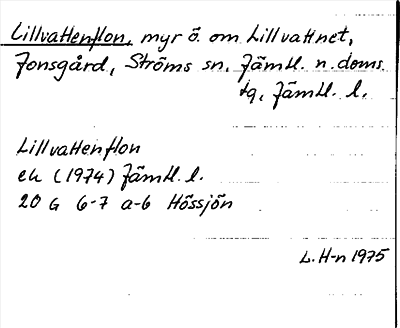 Lillvattenflon, myr ö. om Lillvattnet,
Jonsgård, Ströms sn, Jämtl. n. doms.
tg, Jämtl. l.
Lillvattenflon
ek (1974) Jämtl. l.
20 G 6-7 a-b Hössjön
L. H-n 1975